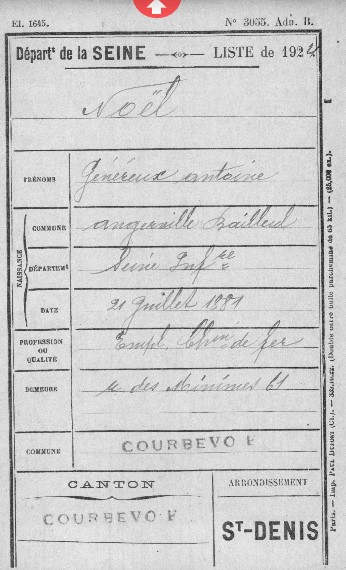 El. 1645. N° 3055. Adn. B.
Départt de la SEINE — LISTE de 1924
Noël
PRÉNOMS Généreux Antoine
NAISSANCE
COMMUNE Angerville Bailleul
DÉPARTEMt Seine Infre
DATE 21 Juillet 1881
PROFESSION OU QUALITÉ Empl. Chin de fer
DEMEURE r. des Minimes 61
COMMUNE COURBEVOIE
CANTON
COURBEVOIE
ARRONDISSEMENT
ST-DENIS
Paris. — Imp. Paul Dupont (Cl.).